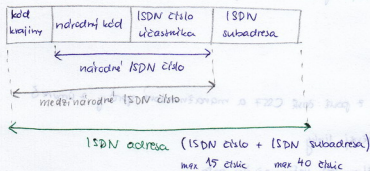 kód krajiny
národný kód
ISDN číslo účastníka
ISDN subadresa
národné ISDN číslo
medzinárodné ISDN číslo
ISDN adresa (ISDN číslo + ISDN subadresa)
max 15 číslic max 40 číslic